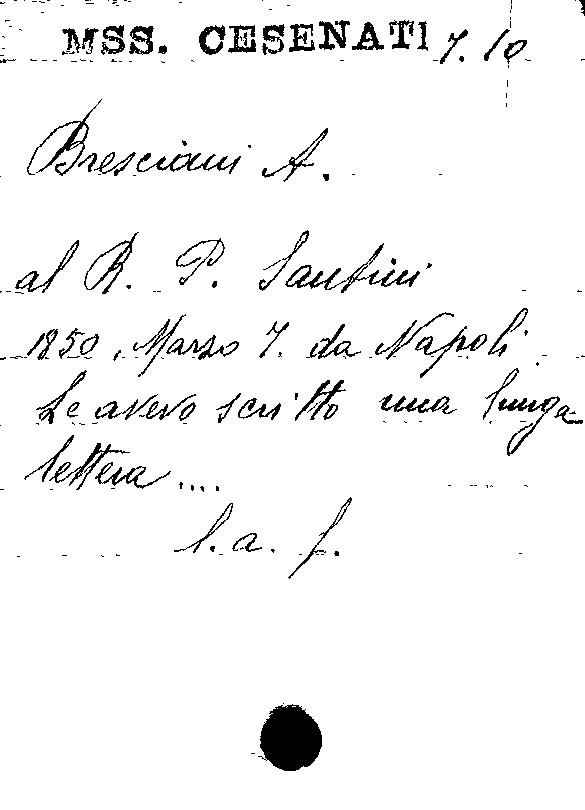 MSS. CESENATI 7. 10
Bresciani A.
al R. P. Santini
1850, Marzo 7. da Napoli
Le avevo scritto una lunga
lettera ....
l. a. f.